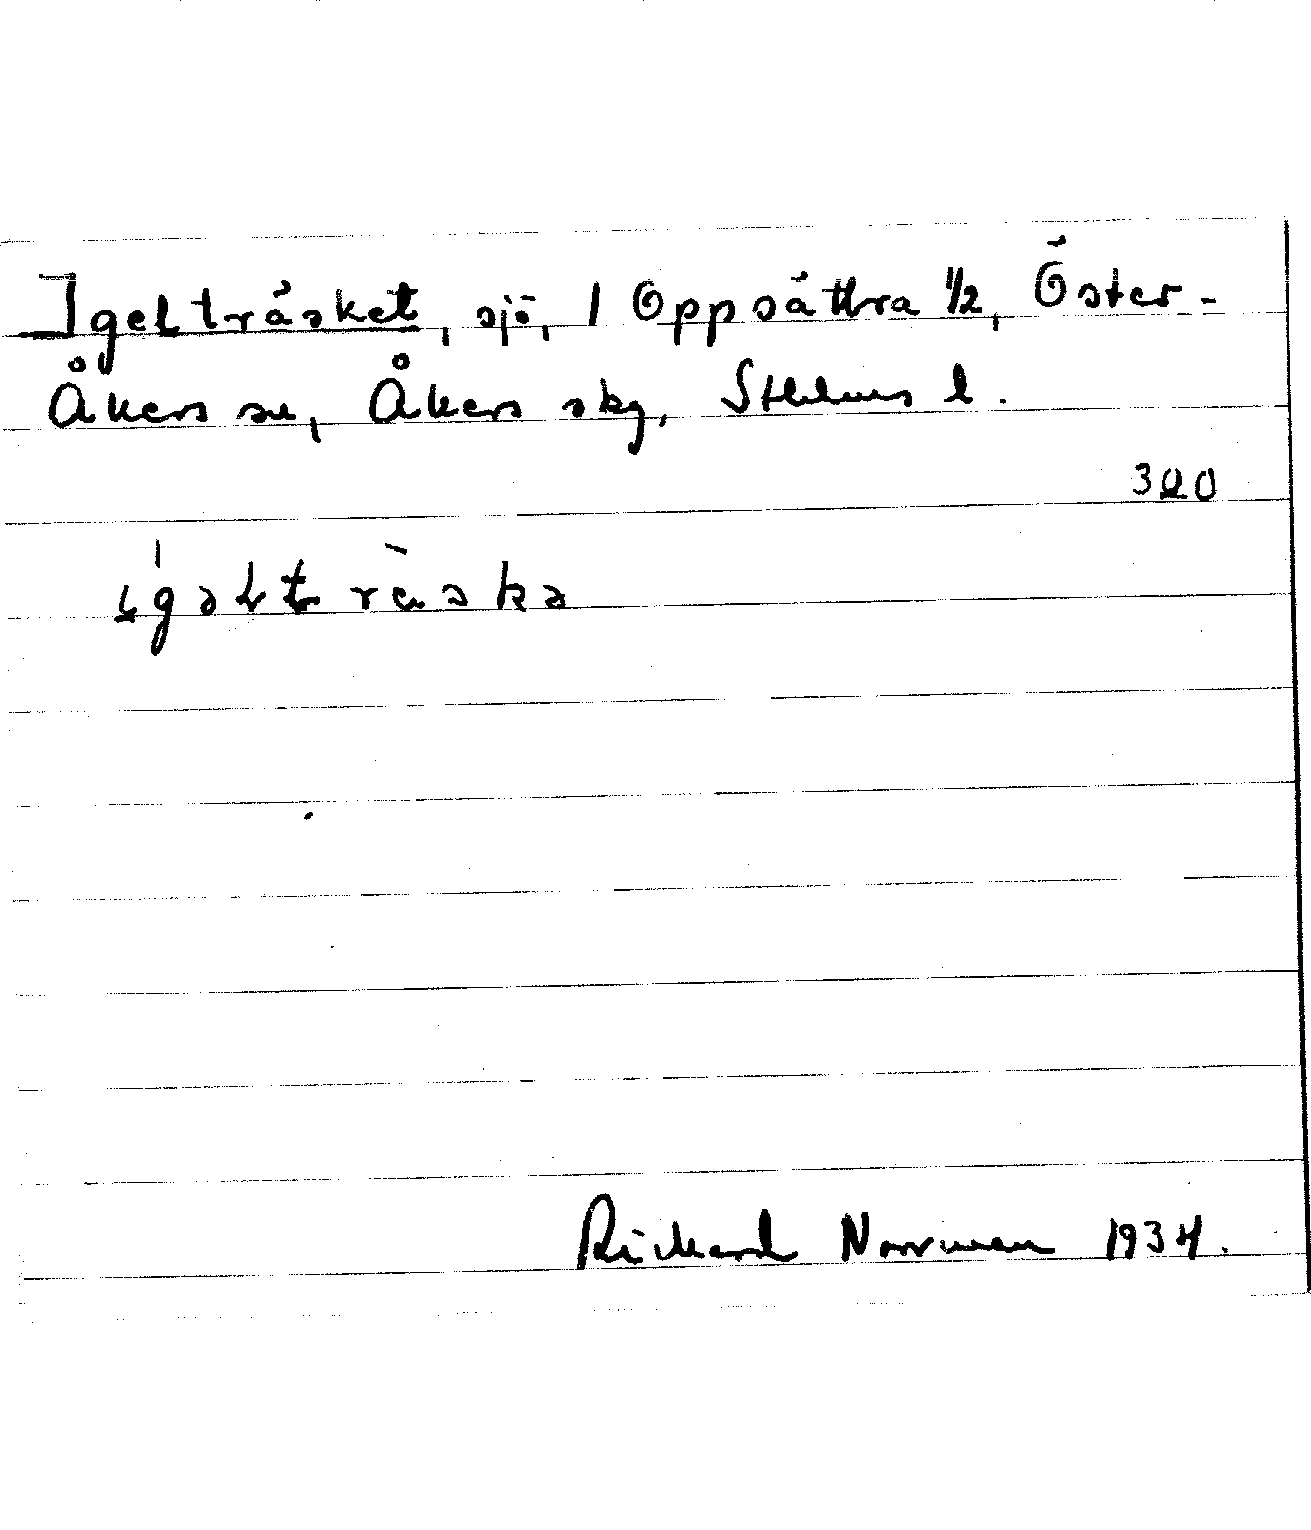 Igelträsket, sjö, 1 Oppsättra 1/2, Öster-
Åkers sn, Åkers skg, Sthlms l.
320
Rickard Norrman 1934.